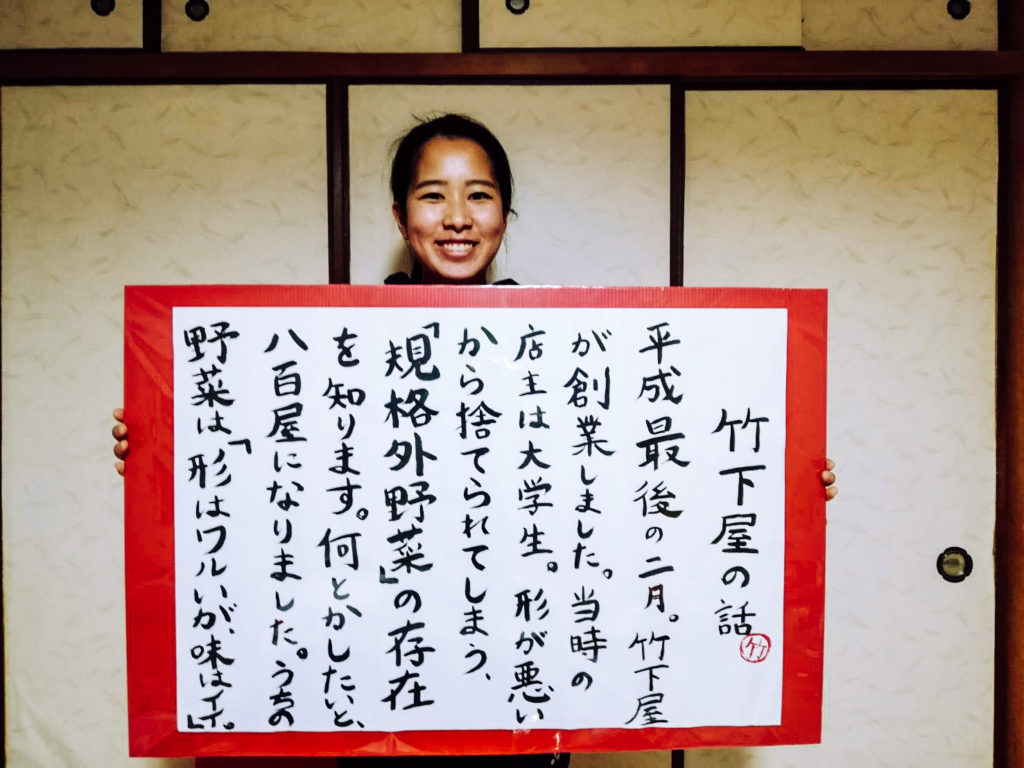 竹下屋の話
竹
平成最後の二月。竹下屋
が創業しました。当時の
店主は大学生。形が悪い
から捨てられてしまう、
「規格外野菜」の存在
を知ります。何とかしたいと、
八百屋になりました。うちの
野菜は「形はワルいが、味はイイ。」